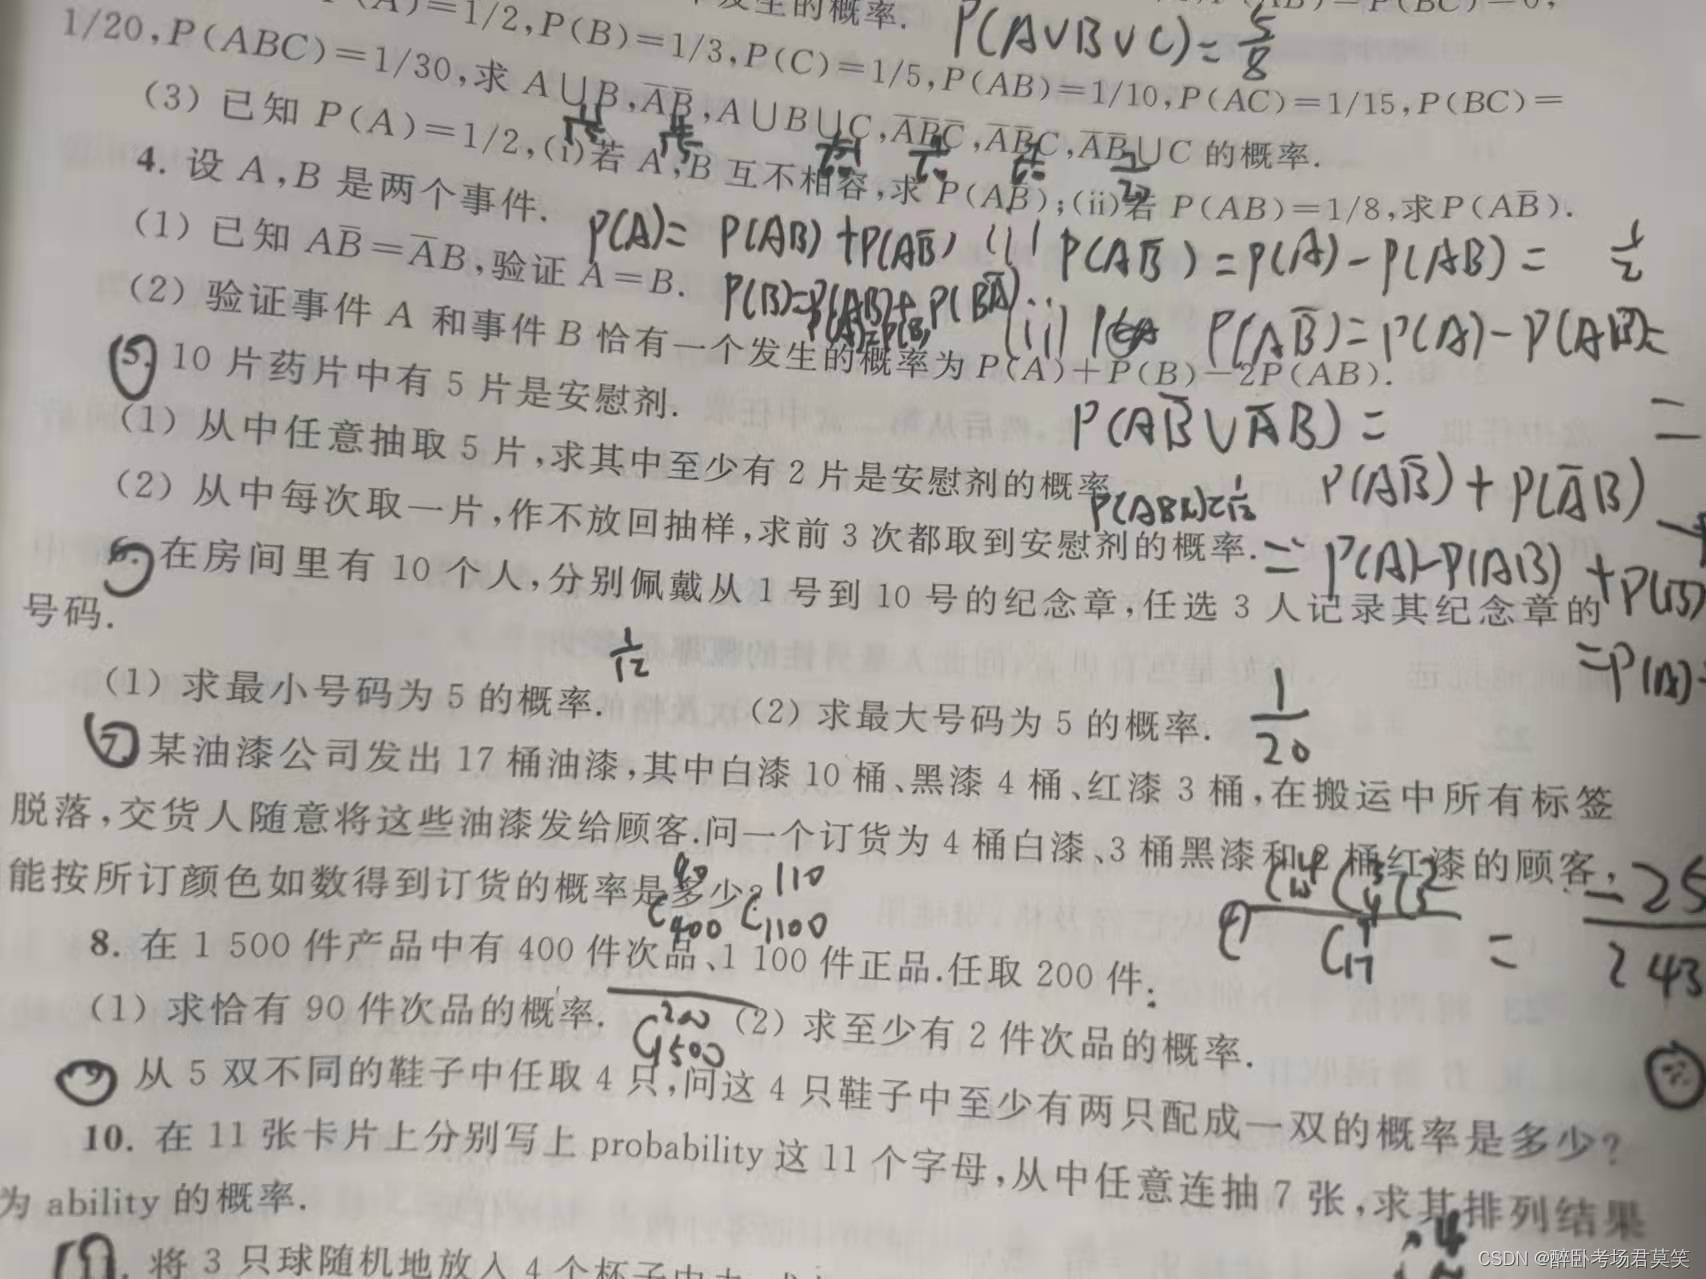 发生的概率. P(A∪B∪C)=5/8
P(A)=1/2,P(B)=1/3,P(C)=1/5,P(AB)=1/10,P(AC)=1/15,P(BC)=
1/20,P(ABC)=1/30,求 A∪B,A̅B̅,A∪B∪C,A̅B̅C̅,A̅B̅C,A̅B̅∪C 的概率.
(3) 已知 P(A)=1/2,(i)若 A,B 互不相容,求 P(AB̅);(ii)若 P(AB)=1/8,求P(AB̅).
4. 设 A,B 是两个事件.
P(A)= P(AB)+P(AB̅) (i) P(AB̅)=P(A)-P(AB)= 1/2
(1) 已知 AB̅=A̅B,验证 A=B.
P(B)=P(AB)+P(BA̅)
P(A)=P(B)
(ii) P(AB̅)=P(A)-P(AB)=
(2) 验证事件 A 和事件 B 恰有一个发生的概率为 P(A)+P(B)-2P(AB).
P(AB̅∪A̅B)=
5. 10 片药片中有 5 片是安慰剂.
(1) 从中任意抽取 5 片,求其中至少有 2 片是安慰剂的概率.
P(AB̅)+P(A̅B)
(2) 从中每次取一片,作不放回抽样,求前 3 次都取到安慰剂的概率.
=P(A)-P(AB)+P(B)
6. 在房间里有 10 个人,分别佩戴从 1 号到 10 号的纪念章,任选 3 人记录其纪念章的
号码.
=P(A)
(1) 求最小号码为 5 的概率. 1/12 (2) 求最大号码为 5 的概率. 1/20
7. 某油漆公司发出 17 桶油漆,其中白漆 10 桶、黑漆 4 桶、红漆 3 桶,在搬运中所有标签
脱落,交货人随意将这些油漆发给顾客.问一个订货为 4 桶白漆、3 桶黑漆和 2 桶红漆的顾客,
能按所订颜色如数得到订货的概率是多少?
8. 在 1 500 件产品中有 400 件次品、1 100 件正品.任取 200 件.
(1) 求恰有 90 件次品的概率. (2) 求至少有 2 件次品的概率.
9 从 5 双不同的鞋子中任取 4 只,问这 4 只鞋子中至少有两只配成一双的概率是多少?
10. 在 11 张卡片上分别写上 probability 这 11 个字母,从中任意连抽 7 张,求其排列结果
为 ability 的概率.
11. 将 3 只球随机地放入 4 个杯子中
CSDN @醉卧考场君莫笑